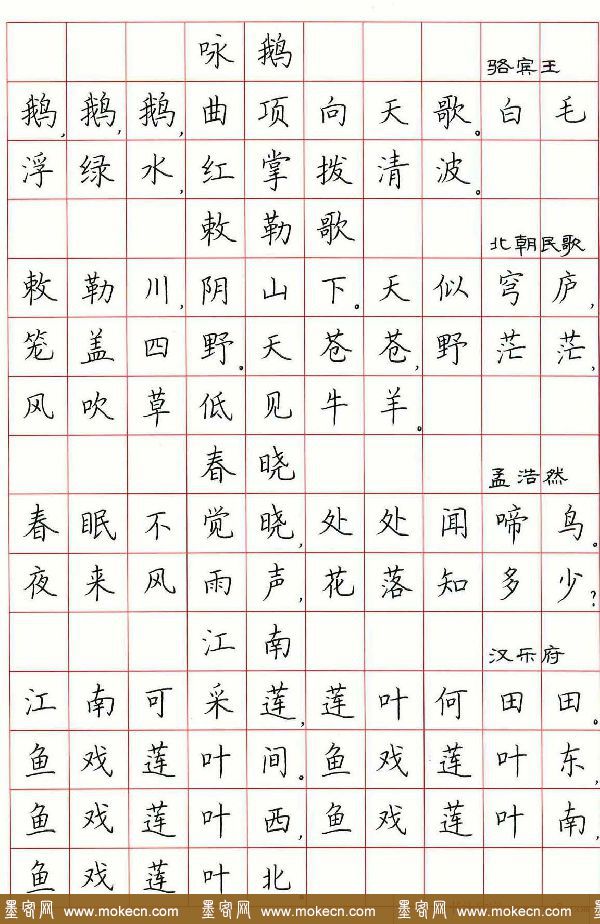 咏鹅 骆宾王
鹅,鹅,鹅,曲项向天歌。白毛
浮绿水,红掌拨清波。
敕勒歌 北朝民歌
敕勒川,阴山下。天似穹庐,
笼盖四野。天苍苍,野茫茫,
风吹草低见牛羊。
春晓 孟浩然
春眠不觉晓,处处闻啼鸟。
夜来风雨声,花落知多少?
江南 汉乐府
江南可采莲,莲叶何田田。
鱼戏莲叶间。鱼戏莲叶东,
鱼戏莲叶西,鱼戏莲叶南,
鱼戏莲叶北。
墨客网 www.mokecn.com 墨客网 www.mokecn.com 墨客网 www.mokecn.com 墨客网 www.mokecn.com